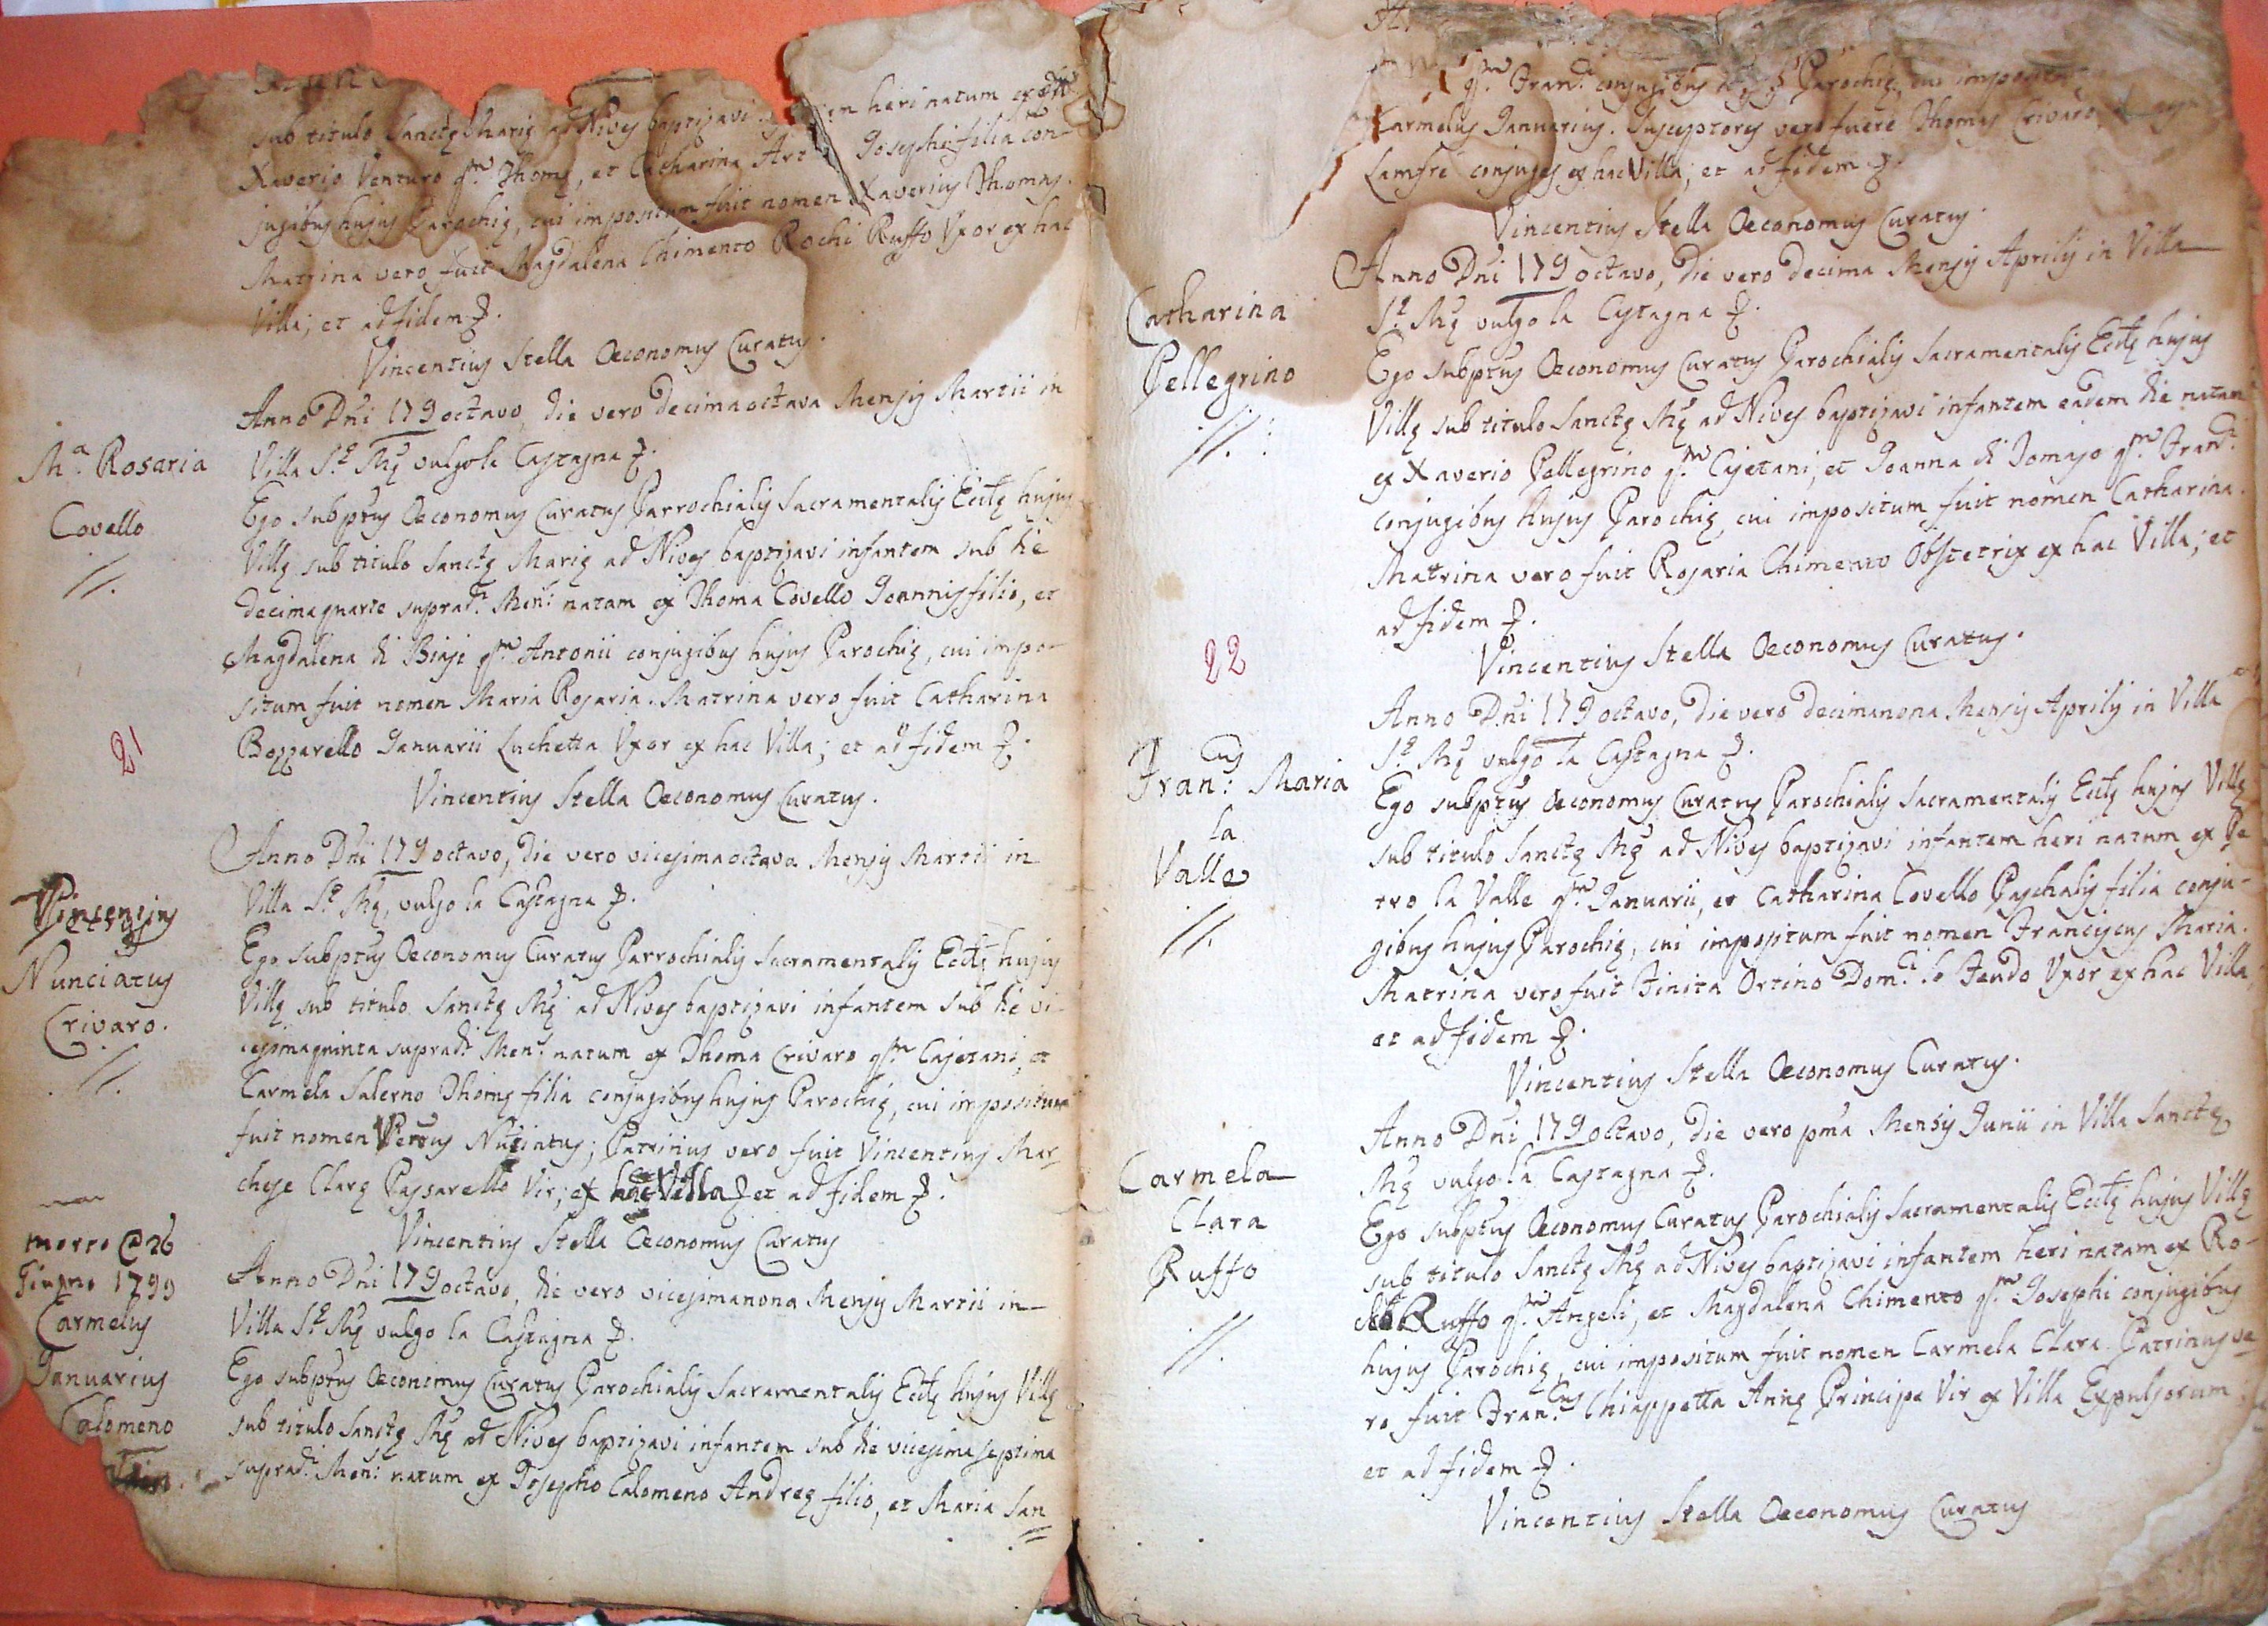 sub titulo Sanctę Marię ad Nives baptizavi heri natum ex
Xaverio Venturo qm Thomę, et Catharina Josephi filia con-
jugibus hujus Parochię, cui impositum fuit nomen Xaverius Thomas.
Matrina vero fuit Magdalena Chimento Rochi Ruffo Uxor ex hac
Villa; et ad fidem &.
Vincentius Stella Oeconomus Curatus.
Ma. Rosaria
Covello
//.
Anno Dni 179octavo, die vero decimaoctava Mensis Martii in
Villa Sę Mę vulgo la Castagna &.
Ego subptus Oeconomus Curatus Parrochialis Sacramentalis Ecclę hujus
Villę sub titulo Sanctę Marię ad Nives baptizavi infantem sub die
decimaquarto supradi Mens: natam ex Thoma Covello Joannis filio, et
Magdalena di Biasi qm Antonii conjugibus hujus Parochię, cui impo-
situm fuit nomen Maria Rosaria. Matrina vero fuit Catharina
Bozzarello Januarii Luchetta Uxor ex hac Villa; et ad fidem &.
Vincentius Stella Oeconomus Curatus.
21
Petrus
Nunciatus
Crivaro.
//.
Anno Dni 179octavo, die vero vicesimaoctava Mensis Martii in
Villa Sę Mę, vulgo la Castagna &.
Ego subptus Oeconomus Curatus Parrochialis Sacramentalis Ecclę hujus
Villę sub titulo Sanctę Mę ad Nives baptizavi infantem sub die vi-
cesimaquinta supradi Mens: natum ex Thoma Crivaro qm Cajetani, et
Carmela Salerno Thomę filia conjugibus hujus Parochię, cui impositum
fuit nomen Petrus; Patrinus vero fuit Vincentius Mar-
chese Clarę Passarello Vir; ex hac Villa & et ad fidem &.
Vincentius Stella Oeconomus Curatus
morto @ 26
Giugno 1799
Carmelus
Januarius
Calomeno
Anno Dni 179octavo, die vero vicesimanona Mensis Martii in
Villa Sę Mę vulgo la Castagna &.
Ego subptus Oeconomus Curatus Parochialis Sacramentalis Ecclę hujus Villę
sub titulo Sanctę Mę ad Nives baptizavi infantem sub die vicesimaseptima
supradi Mens: natum ex Josepho Calomeno Andreę filio, et Maria San
qm Frani conjugibus Parochię, cui impositum
Carmelus Januarius. Susceptores vero fuere Thomas Crivaro
Lamfre conjuges ex hac Villa; et ad fidem &.
Vincentius Stella Oeconomus Curatus.
Catharina
Pellegrino
//.
Anno Dni 179octavo, die vero decima Mensis Aprilis in Villa
Sę Mę vulgo la Castagna &.
Ego subptus Oeconomus Curatus Parochialis Sacramentalis Ecclę hujus
Villę sub titulo Sanctę Mę ad Nives baptizavi infantem eadem die natam
ex Xaverio Pellegrino qm Cajetani, et Joanna di Tomaso qm Frani
conjugibus hujus Parochię, cui impositum fuit nomen Catharina.
Matrina vero fuit Rosaria Chimento Obstetrix ex hac Villa; et
ad fidem &.
Vincentius Stella Oeconomus Curatus.
22
Francus Maria
la
Valle
//.
Anno Dni 179octavo, die vero decimanona Mensis Aprilis in Villa
Sę Mę vulgo la Castagna &.
Ego subptus Oeconomus Curatus Parochialis Sacramentalis Ecclę hujus Villę
sub titulo Sanctę Mę ad Nives baptizavi infantem heri natum ex Pe
tro la Valle qm Januarii, et Catharina Covello Paschalis filia conju-
gibus hujus Parochię, cui impositum fuit nomen Franciscus Maria.
Matrina vero fuit Finita Ortino Domci lo Feudo Uxor ex hac Villa
et ad fidem &.
Vincentius Stella Oeconomus Curatus.
Carmela
Clara
Ruffo
//.
Anno Dni 179octavo, die vero pma Mensis Junii in Villa Sanctę
Mę vulgo la Castagna &.
Ego subptus Oeconomus Curatus Parochialis Sacramentalis Ecclę hujus Villę
sub titulo Sanctę Mę ad Nives baptizavi infantem heri natam ex Ro-
Ruffo qm Angeli, et Magdalena Chimento qm Josephi conjugibus
hujus Parochię, cui impositum fuit nomen Carmela Clara. Patrinus ve-
ro fuit Francus Chiappetta Annę Principe Vir ex Villa Expulsorum;
et ad fidem &.
Vincentius Stella Oeconomus Curatus